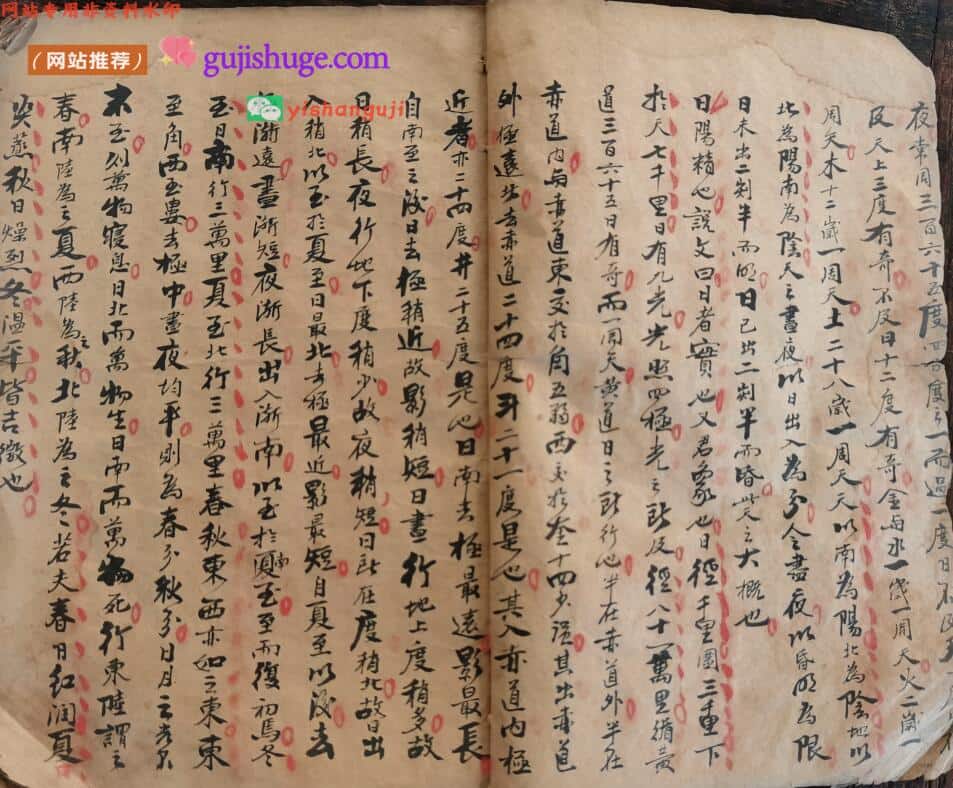 网站专用非资料水印
（网站推荐）
gujishuge.com
yishanguji
夜常周三百六十五度四分度之一而過一度日不及天一
反天上三度有奇不及日十二度有奇金与水一歲一周天火二歲一
周天木十二歲一周天土二十八歲一周天天以南為陽北為陰地以
北為陽南為陰天之晝夜以日出入為分人之晝夜以昏明為限
日未出二刻半而明日已出二刻半而昏此之大概也
曰陽精也說文曰日者實也又君象也日徑千里圍三重下
於天七千里日有九光光照四極光之所及徑八十一萬里循黃
道三百六十五日有奇而一周天黃道日之所行也半在赤道外半在
赤道内与赤道東交於角五弱西交於奎十四少强其出赤道
外極遠北去赤道二十四度斗二十一度是也其入赤道内極
近者亦二十四度井二十五度是也日南去極最遠影最長
自南至之後日去極稍近故影稍短日晝行地上度稍多故
日稍長夜行地下度稍少故夜稍短日所在度稍北故日出
入稍北以至於夏至日最北去極最近影最短自夏至以後去
漸遠晝漸短夜漸長出入漸南以至於南至而復初馬冬
至日南行三萬里夏至北行三萬里春秋東西亦如之東
至角西至婁去極中晝夜均平則為春分秋分日月之
末至則萬物寢息日北而萬物生日南而萬物死行東陸謂之
春南陸為之夏西陸為之秋北陸為之冬若夫春日紅潤夏
炎蒸秋日燥烈冬溫平皆吉徵也